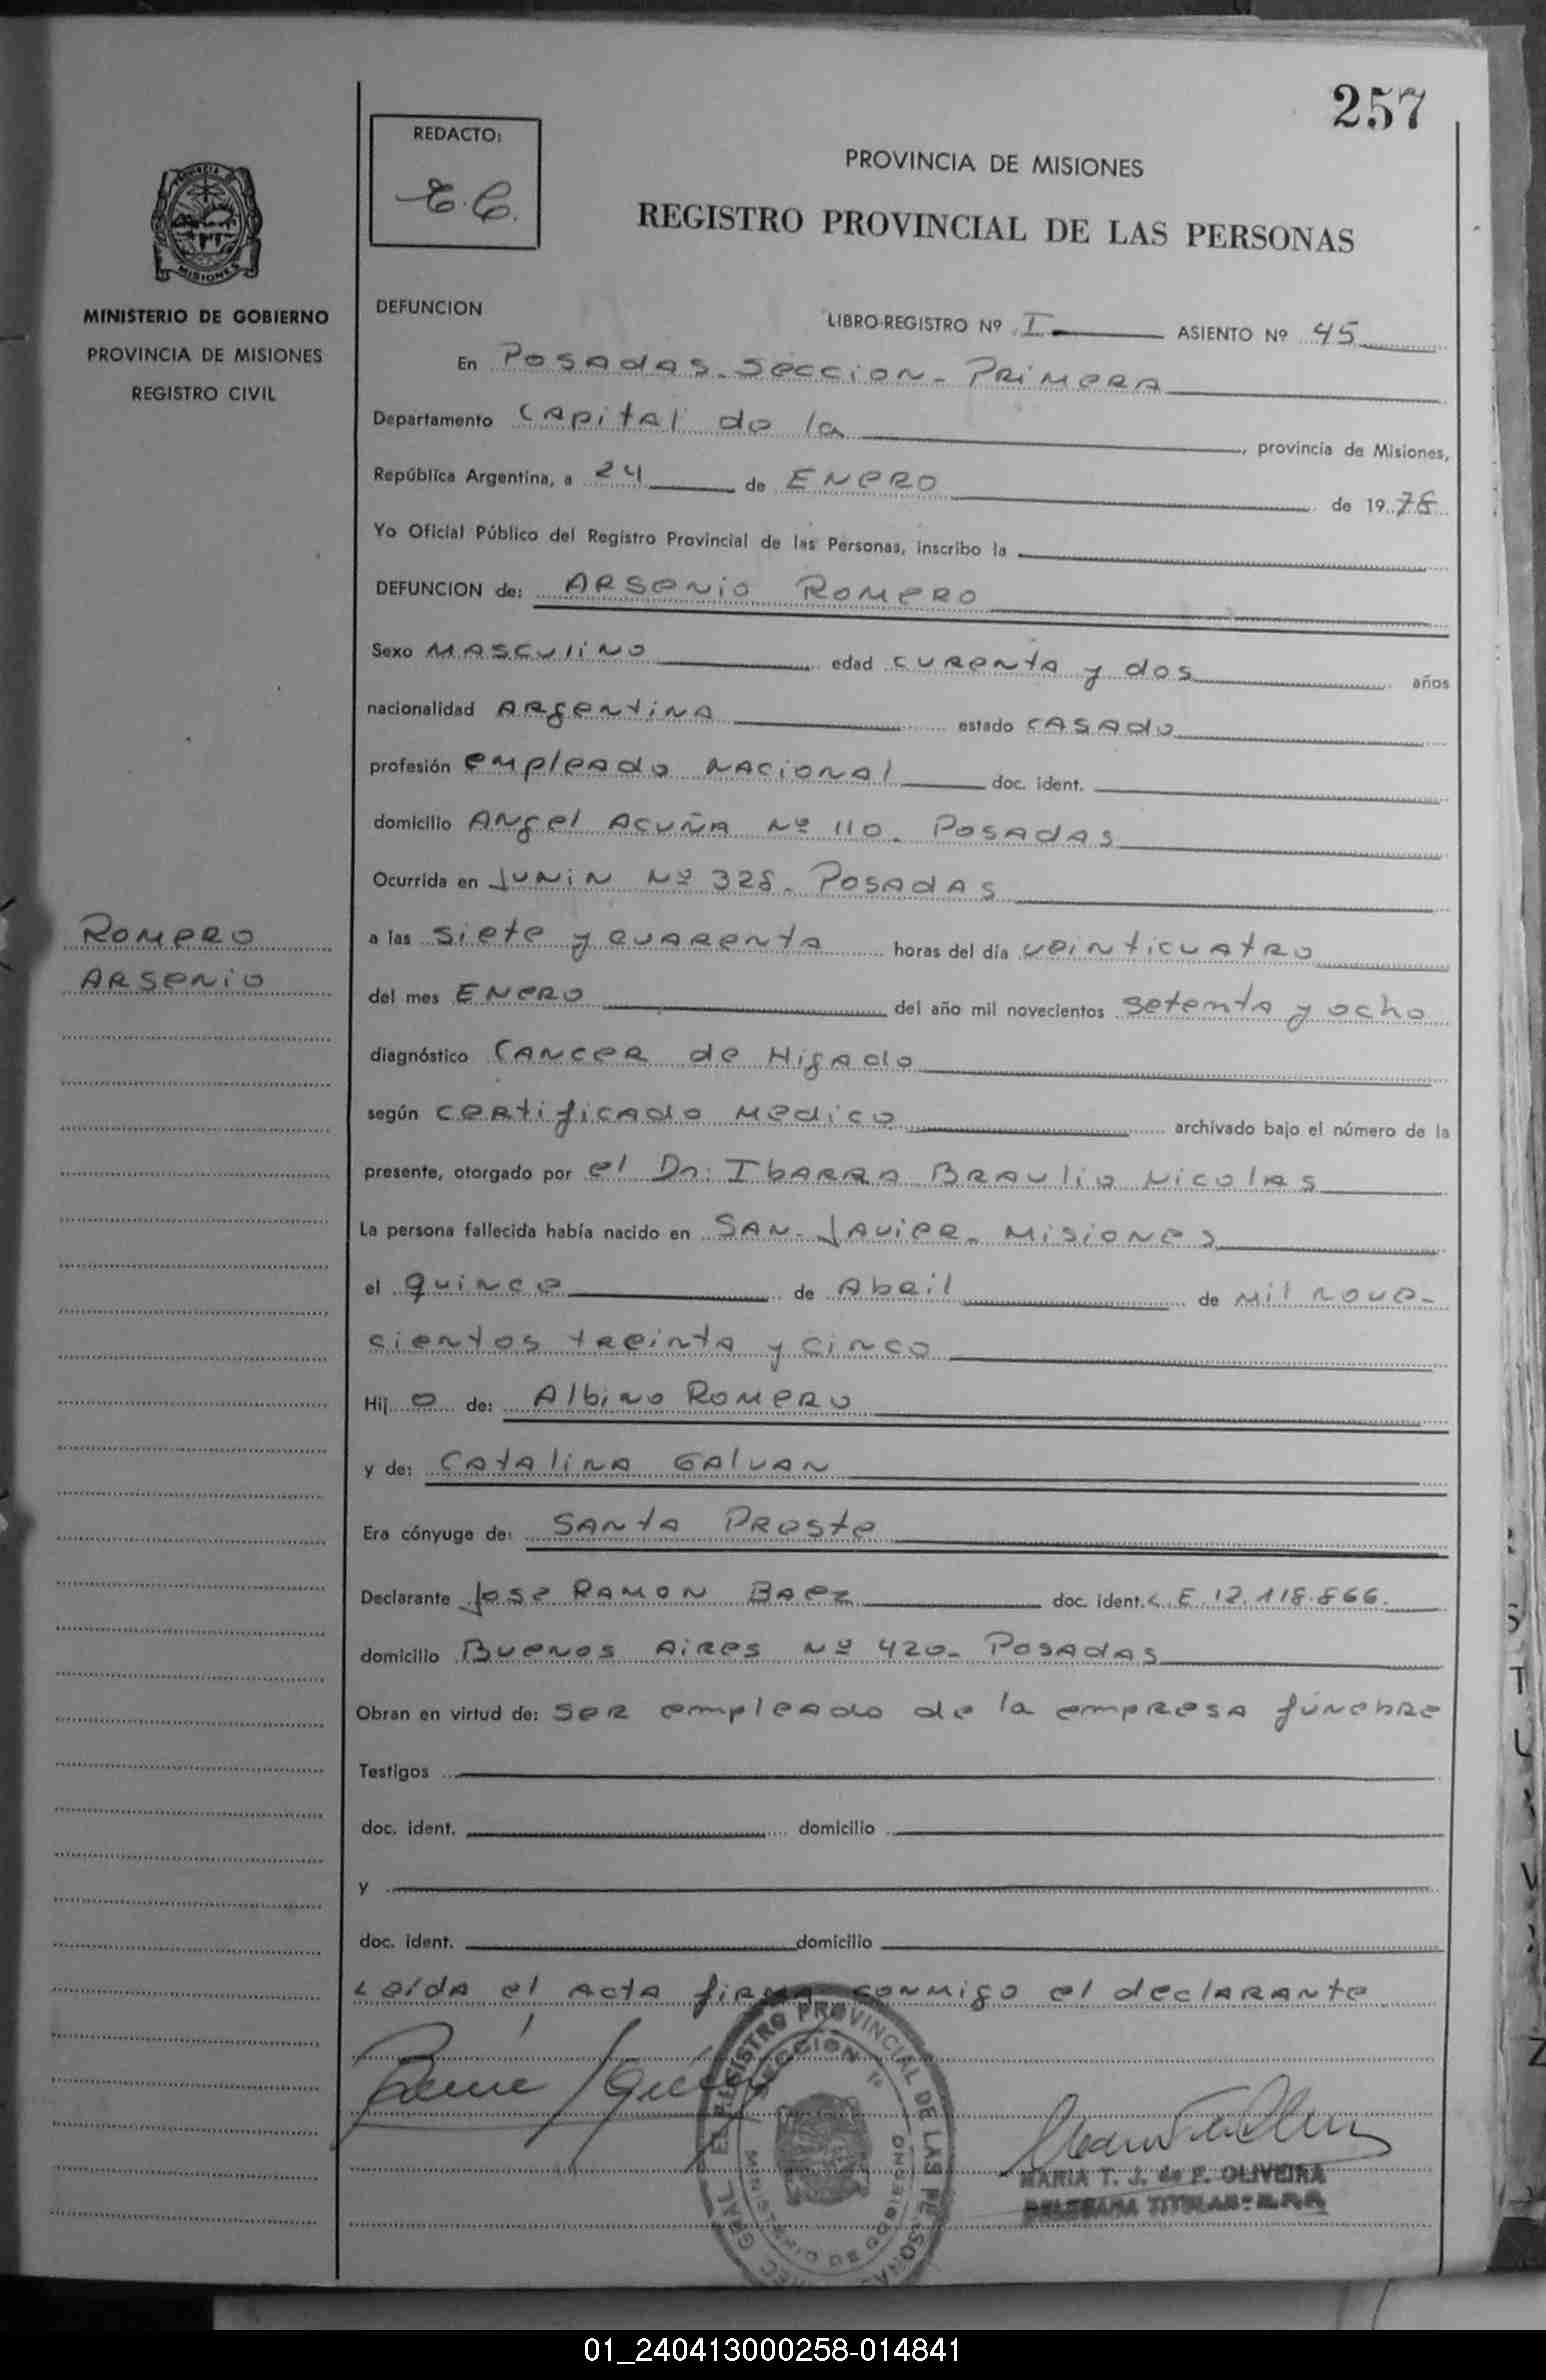 257
REDACTO:
E.C.
PROVINCIA DE MISIONES
REGISTRO PROVINCIAL DE LAS PERSONAS
PROVINCIA
MISIONES
MINISTERIO DE GOBIERNO
PROVINCIA DE MISIONES
REGISTRO CIVIL
DEFUNCION
LIBRO-REGISTRO Nº I ASIENTO Nº 45
En Posadas-Seccion-Primera
Departamento Capital de la, provincia de Misiones,
República Argentina, a 24 de Enero de 1978
Yo Oficial Público del Registro Provincial de las Personas, inscribo la
DEFUNCION de: Arsenio Romero
Sexo Masculino edad curenta y dos años
nacionalidad Argentina estado casado
profesión empleado nacional doc. ident.
domicilio Angel Acuña Nº 110- Posadas
Ocurrida en Junin Nº 328- Posadas
a las siete y cuarenta horas del día veinticuatro
Romero
Arsenio
del mes Enero del año mil novecientos setenta y ocho
diagnóstico Cancer de Higado
según certificado medico archivado bajo el número de la
presente, otorgado por el Dr. Ibarra Braulio Nicolas
La persona fallecida había nacido en San-Javier- Misiones
el quince de Abril de mil nove-
cientos treinta y cinco
Hij o de: Albino Romero
y de: Catalina Galvan
Era cónyuge de: Santa Preste
Declarante Jose Ramon Baez doc. ident. C.E. 12.118.866.
domicilio Buenos Aires Nº 420- Posadas
Obran en virtud de: ser empleado de la empresa fúnebre
Testigos
doc. ident. domicilio
y
doc. ident. domicilio
Leída el acta firma conmigo el declarante
REGISTRO PROVINCIAL DE LAS PERSONAS
SECCION 1ª
MINISTERIO DE GOBIERNO
MARIA T. J. de F. OLIVEIRA
DELEGADA TITULAR- R.P.P.
01_240413000258-014841